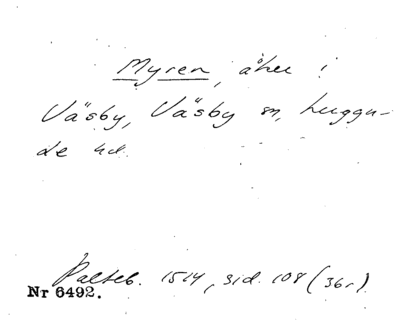 Myren, åker i
Väsby, Väsby sn, Luggu-
de hd.
Palteb. 1514, sid. 108 (36r)
Nr 6492.